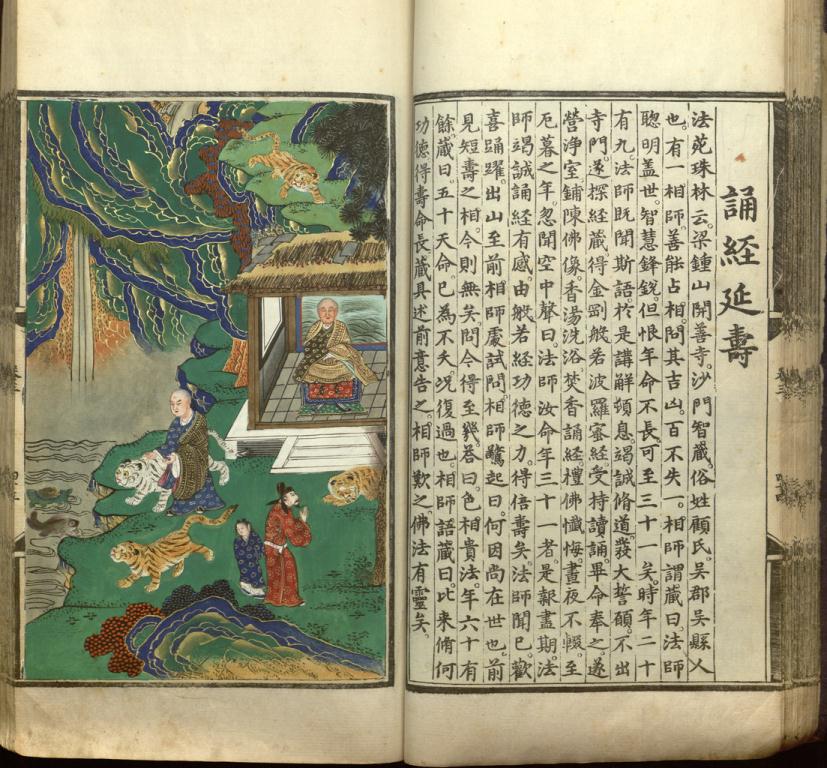 誦經延壽
法苑珠林云。梁鍾山開善寺。沙門智藏。俗姓顧氏。吳郡吳縣人
也。有一相師。善能占相。問其吉凶。百不失一。相師謂藏曰。法師
聰明蓋世。智慧鋒銳。但恨年命不長。可至三十一矣。時年二十
有九。法師既聞斯語。於是講解頓息。竭誠脩道。發大誓願。不出
寺門。遂探經藏。得金剛般若波羅蜜經。受持讀誦。畢命奉之。遂
營淨室。鋪陳佛像。香湯洗浴。焚香誦經。禮佛懺悔。晝夜不輟。至
厄暮之年。忽聞空中聲曰。法師汝命年三十一者。是報盡期。法
師竭誠誦經有感。由般若經功德之力。得倍壽矣。法師聞已。歡
喜踊躍。出山至前相師處試問。相師驚起曰。何因尚在世也。前
見短壽之相。今則無矣。問今得至幾。答曰。色相貴法。年六十有
餘。藏曰。五十天命。已為不夭。況復過也。相師語藏曰。比來脩何
功德。得壽命長。藏具述前意告之。相師歎之。佛法有靈矣。